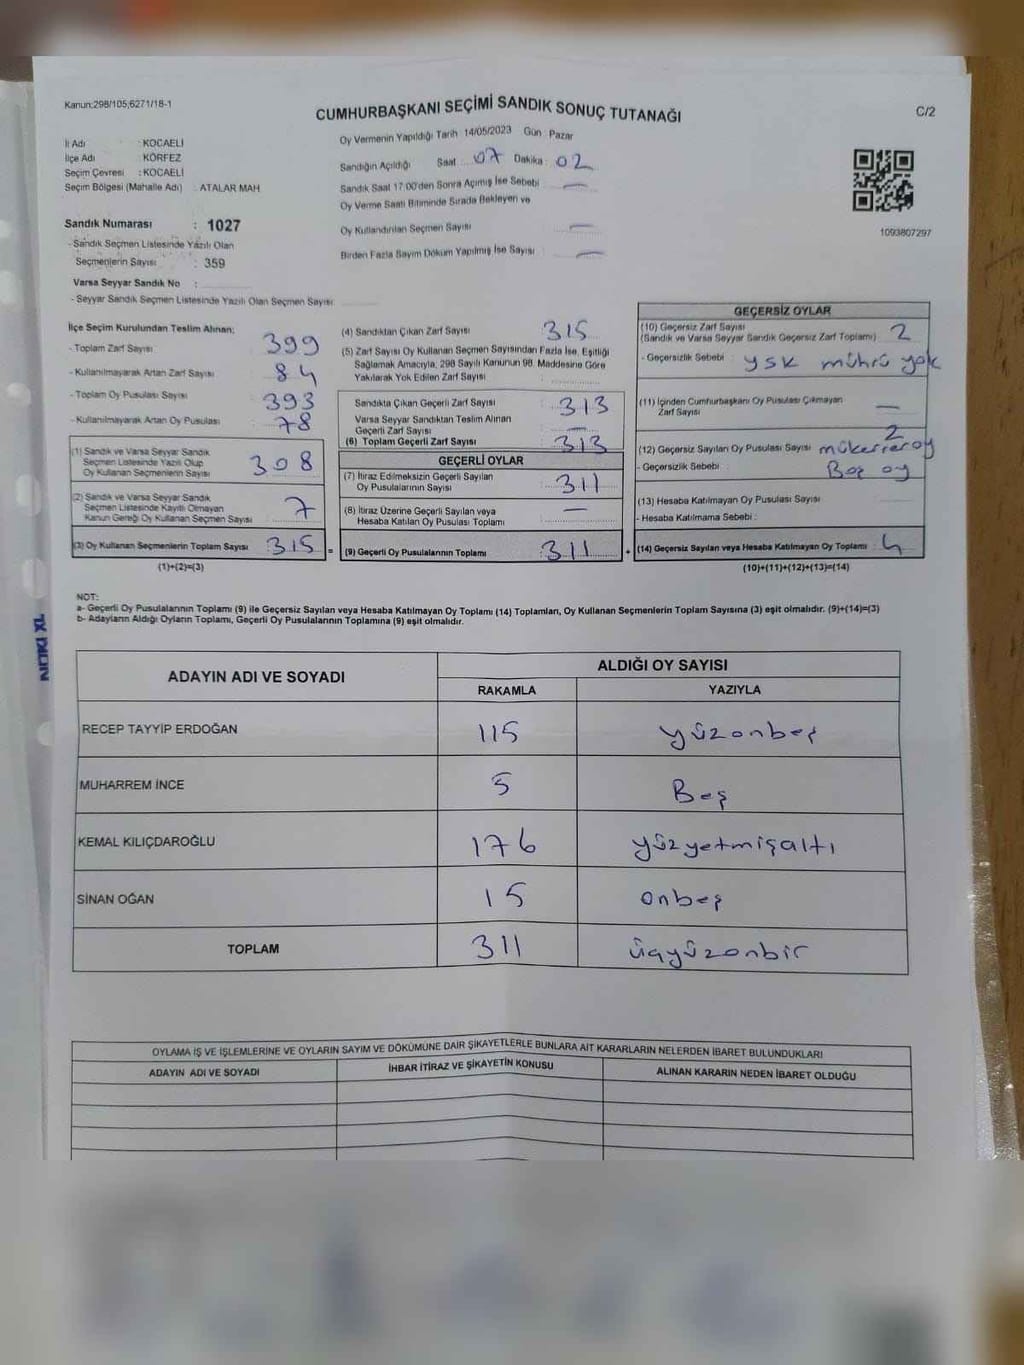 Kanun:298/105;6271/18-1
CUMHURBAŞKANI SEÇİMİ SANDIK SONUÇ TUTANAĞI
C/2
İl Adı : KOCAELİ
İlçe Adı : KÖRFEZ
Seçim Çevresi : KOCAELİ
Seçim Bölgesi (Mahalle Adı) : ATALAR MAH
Oy Vermenin Yapıldığı Tarih 14/05/2023 Gün : Pazar
Sandığın Açıldığı Saat : 07 Dakika : 02
Sandık Saat 17:00'den Sonra Açımış İse Sebebi : —
Oy Verme Saati Bitiminde Sırada Bekleyen ve
Oy Kullandırılan Seçmen Sayısı : —
Birden Fazla Sayım Döküm Yapılmış İse Sayısı : —
1093807297
Sandık Numarası : 1027
- Sandık Seçmen Listesinde Yazılı Olan
Seçmenlerin Sayısı : 359
Varsa Seyyar Sandık No :
- Seyyar Sandık Seçmen Listesinde Yazılı Olan Seçmen Sayısı:
İlçe Seçim Kurulundan Teslim Alınan;
- Toplam Zarf Sayısı : 399
- Kullanılmayarak Artan Zarf Sayısı : 84
- Toplam Oy Pusulası Sayısı : 393
- Kullanılmayarak Artan Oy Pusulası : 78
(1) Sandık ve Varsa Seyyar Sandık
Seçmen Listesinde Yazılı Olup
Oy Kullanan Seçmenlerin Sayısı : 308
(2) Sandık ve Varsa Seyyar Sandık
Seçmen Listesinde Kayıtlı Olmayan
Kanun Gereği Oy Kullanan Seçmen Sayısı : 7
(3) Oy Kullanan Seçmenlerin Toplam Sayısı : 315 =
(1)+(2)=(3)
(4) Sandıktan Çıkan Zarf Sayısı : 315
(5) Zarf Sayısı Oy Kullanan Seçmen Sayısından Fazla İse, Eşitliği
Sağlamak Amacıyla, 298 Sayılı Kanunun 98. Maddesine Göre
Yakılarak Yok Edilen Zarf Sayısı :
Sandıkta Çıkan Geçerli Zarf Sayısı : 313
Varsa Seyyar Sandıktan Teslim Alınan
Geçerli Zarf Sayısı : —
(6) Toplam Geçerli Zarf Sayısı : 313
GEÇERLİ OYLAR
(7) İtiraz Edilmeksizin Geçerli Sayılan
Oy Pusulalarının Sayısı : 311
(8) İtiraz Üzerine Geçerli Sayılan veya
Hesaba Katılan Oy Pusulası Toplamı : —
(9) Geçerli Oy Pusulalarının Toplamı : 311 +
GEÇERSİZ OYLAR
(10) Geçersiz Zarf Sayısı
(Sandık ve Varsa Seyyar Sandık Geçersiz Zarf Toplamı) : 2
- Geçersizlik Sebebi : ysk mührü yok
(11) İçinden Cumhurbaşkanı Oy Pusulası Çıkmayan
Zarf Sayısı : —
2
(12) Geçersiz Sayılan Oy Pusulası Sayısı : mükerrer oy
- Geçersizlik Sebebi : Boş oy
(13) Hesaba Katılmayan Oy Pusulası Sayısı :
- Hesaba Katılmama Sebebi :
(14) Geçersiz Sayılan veya Hesaba Katılmayan Oy Toplamı : 4
(10)+(11)+(12)+(13)=(14)
NOT:
a- Geçerli Oy Pusulalarının Toplamı (9) ile Geçersiz Sayılan veya Hesaba Katılmayan Oy Toplamı (14) Toplamları, Oy Kullanan Seçmenlerin Toplam Sayısına (3) eşit olmalıdır. (9)+(14)=(3)
b- Adayların Aldığı Oyların Toplamı, Geçerli Oy Pusulalarının Toplamına (9) eşit olmalıdır.
ADAYIN ADI VE SOYADI
ALDIĞI OY SAYISI
RAKAMLA YAZIYLA
RECEP TAYYİP ERDOĞAN 115 yüzonbeş
MUHARREM İNCE 5 Beş
KEMAL KILIÇDAROĞLU 176 yüzyetmişaltı
SİNAN OĞAN 15 onbeş
TOPLAM 311 üçyüzonbir
OYLAMA İŞ VE İŞLEMLERİNE VE OYLARIN SAYIM VE DÖKÜMÜNE DAİR ŞİKAYETLERLE BUNLARA AİT KARARLARIN NELERDEN İBARET BULUNDUKLARI
ADAYIN ADI VE SOYADI İHBAR İTİRAZ VE ŞİKAYETİN KONUSU ALINAN KARARIN NEDEN İBARET OLDUĞU